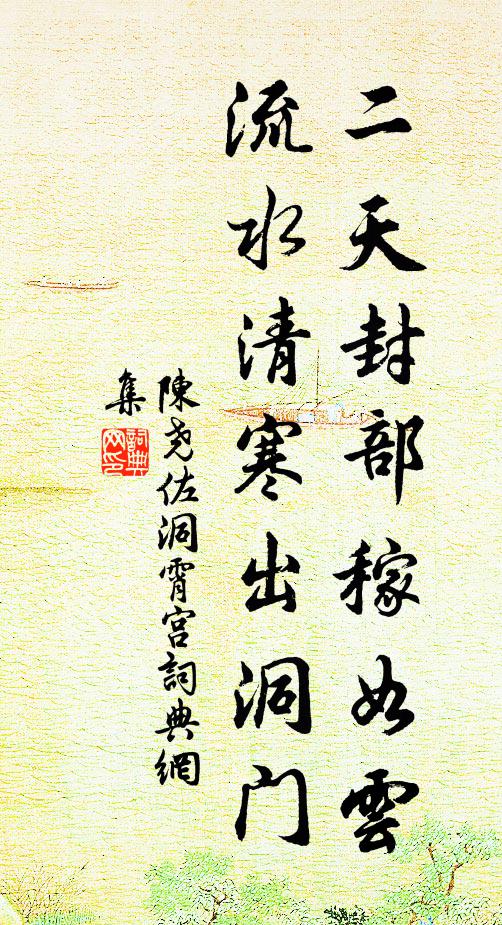 二天封部稼如雲
流水清寒出洞門
陳堯佐洞霄宮詞典網
集
詞典
网印